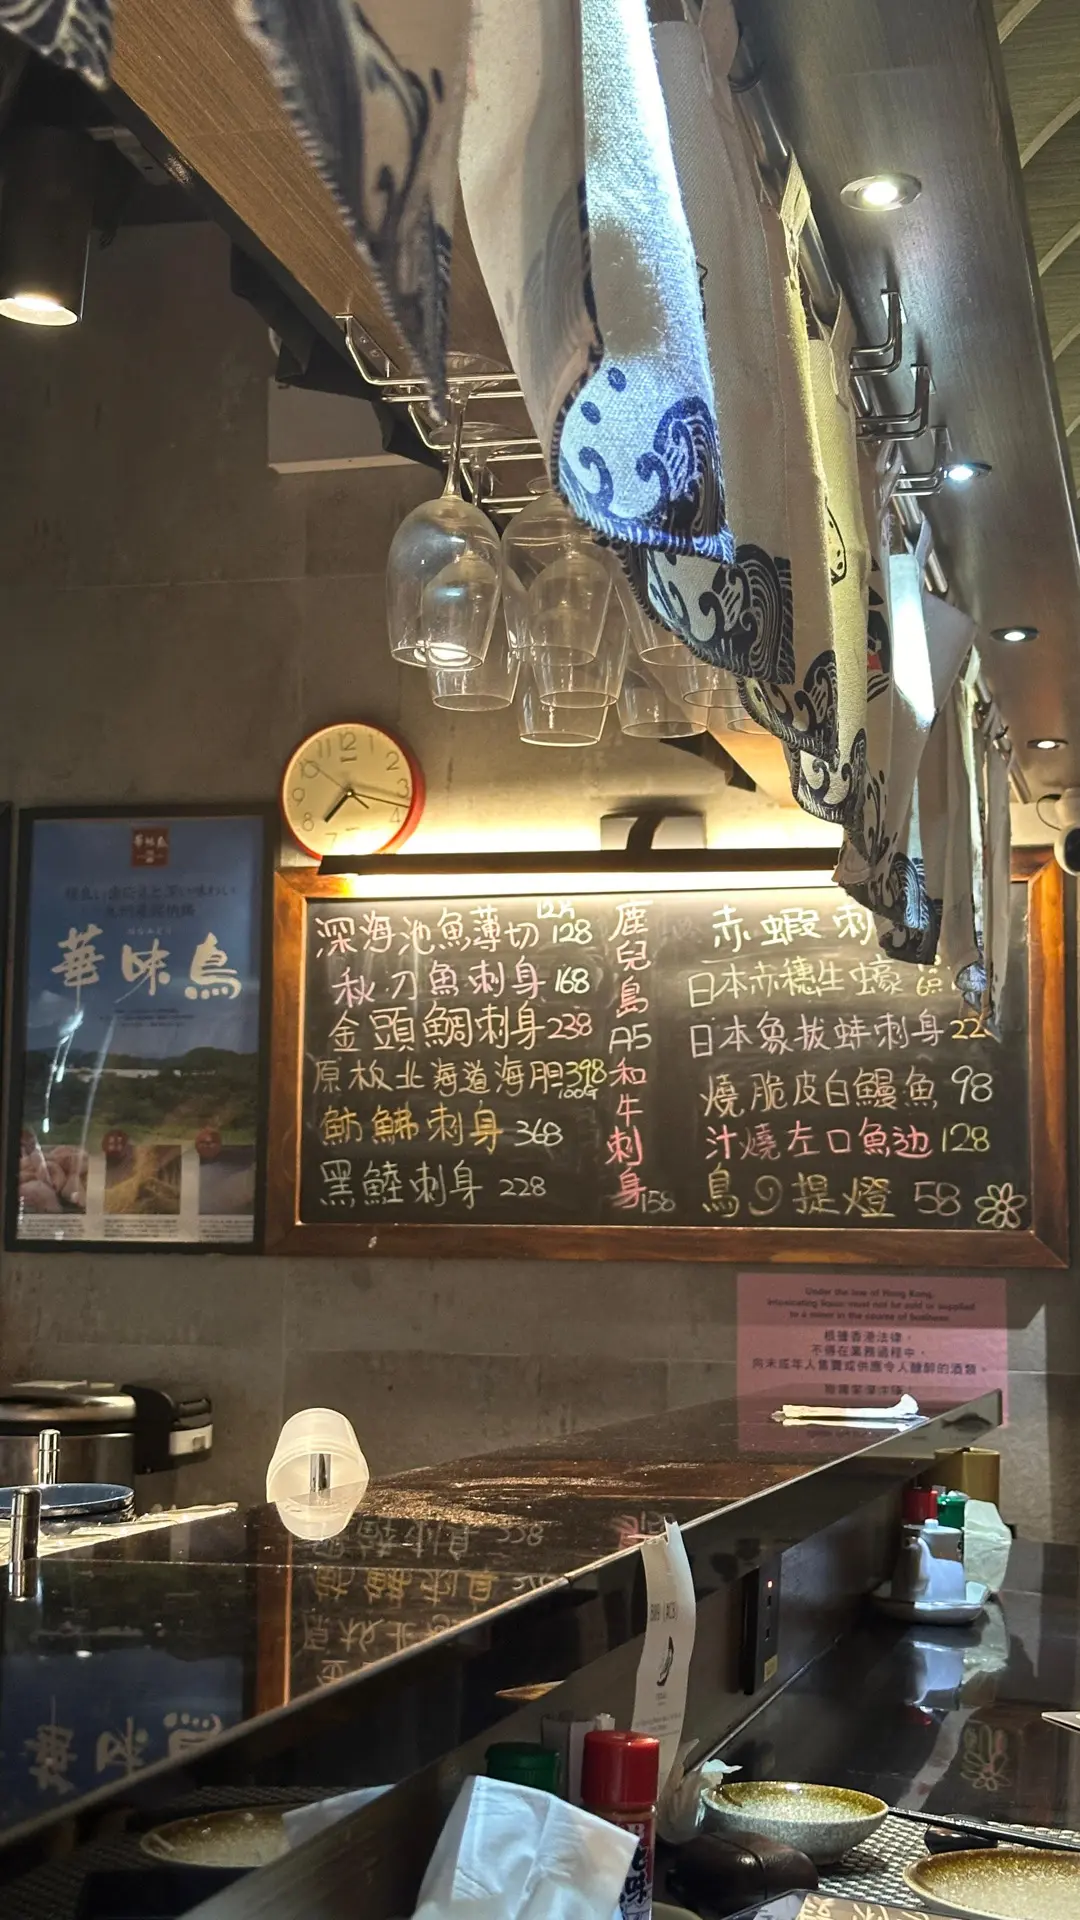 12
1
2
3
4
7
8
9
10
11
華味鳥
華味鳥
12片
深海池魚薄切 128
秋刀魚刺身 168
金頭鯛刺身 238
原板北海道海胆 398
100G
魴鮄刺身 368
黑鯥刺身 228
鹿兒島A5和牛刺身 158
赤蝦刺
日本赤穗生蠔
日本象拔蚌刺身 22
燒脆皮白鱔魚 98
汁燒左口魚边 128
鳥の提燈 58
Under the law of Hong Kong,
intoxicating liquor must not be sold or supplied
to a minor in the course of business
根據香港法律，
不得在業務過程中，
向未成年人售賣或供應令人醺醉的酒類。